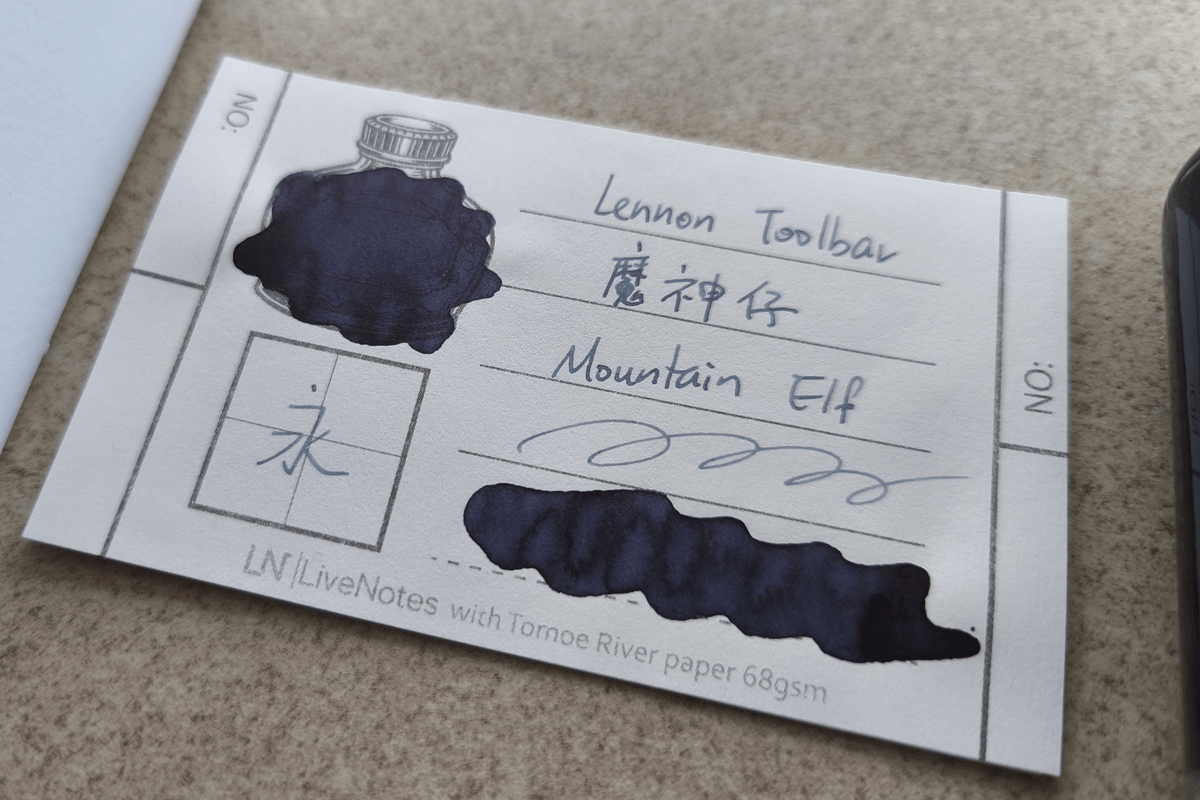 NO:
Lennon Toolbar
魔神仔
Mountain Elf
永
NO:
LN|LiveNotes with Tomoe River paper 68gsm